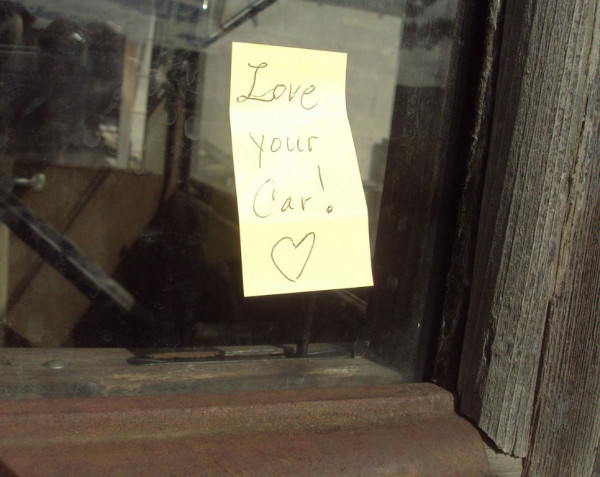 Love
your
Car!